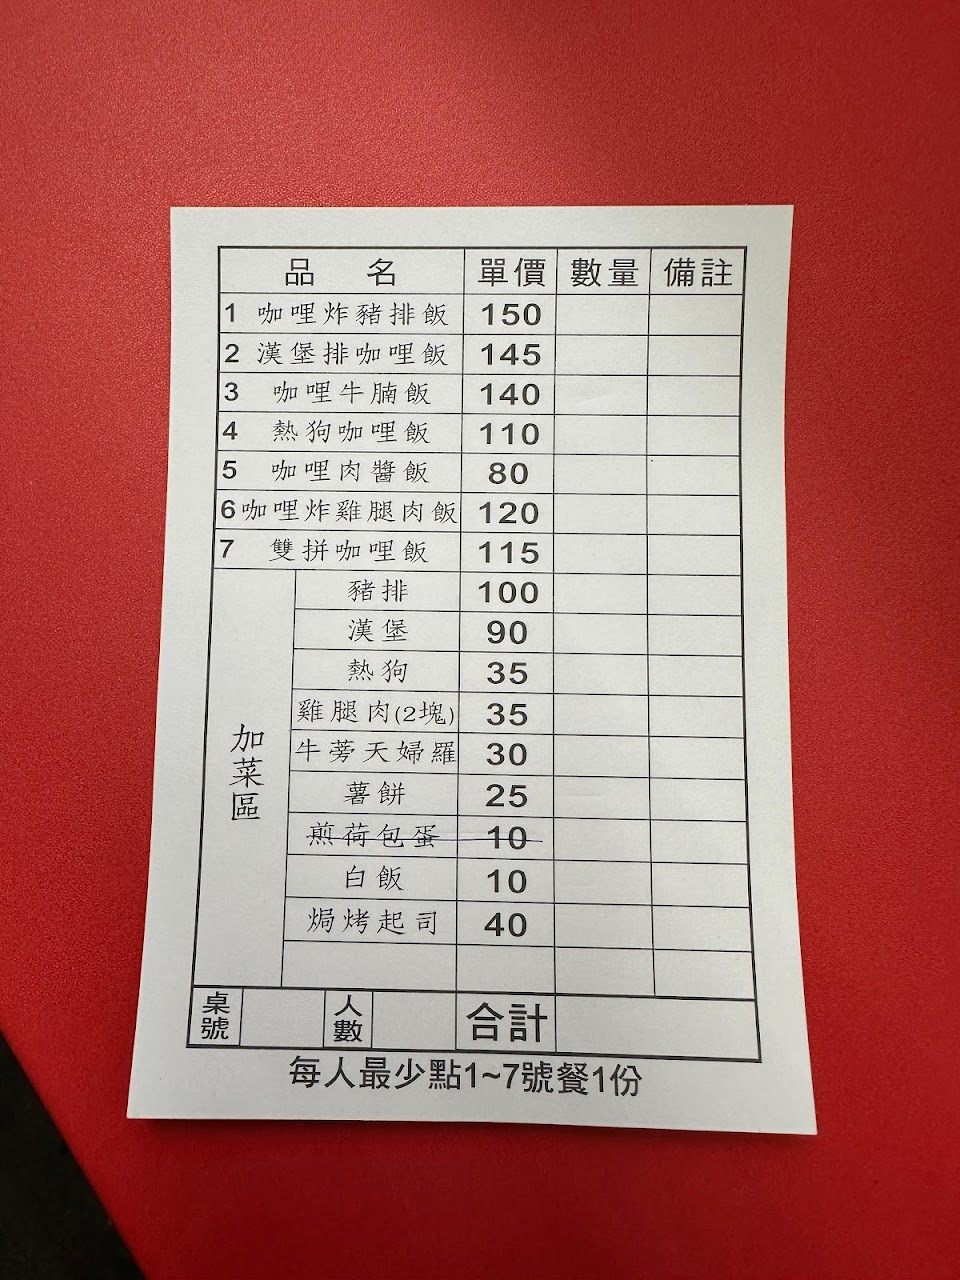 品名 單價 數量 備註
1 咖哩炸豬排飯 150
2 漢堡排咖哩飯 145
3 咖哩牛腩飯 140
4 熱狗咖哩飯 110
5 咖哩肉醬飯 80
6 咖哩炸雞腿肉飯 120
7 雙拼咖哩飯 115
加菜區
豬排 100
漢堡 90
熱狗 35
雞腿肉(2塊) 35
牛蒡天婦羅 30
薯餅 25
煎荷包蛋 10
白飯 10
焗烤起司 40
桌號 人數 合計
每人最少點1~7號餐1份